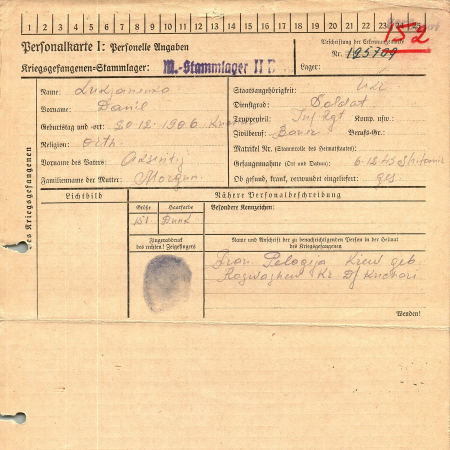 1 2 3 4 5 6 7 8 9 10 11 12 13 14 15 16 17 18 19 20 21 22 23 24 25
152
Personalkarte I: Personelle Angaben
Kriegsgefangenen-Stammlager: M.-Stammlager II B
Beschriftung der Erkennungsmarke
Nr. 195709
Lager:
Des Kriegsgefangenen
Name: Lukjanenko
Vorname: Danil
Geburtstag und -ort: 20.12.1906
Religion: Orth.
Vorname des Vaters:
Familienname der Mutter: Morgun
Staatsangehörigkeit: Ukr
Dienstgrad: Soldat
Truppenteil: Inf. Rgt Komp. usw.:
Zivilberuf: Bauer Berufs-Gr.:
Matrikel Nr. (Stammrolle des Heimatstaates):
Gefangennahme (Ort und Datum): 6.12.43
Ob gesund, krank, verwundet eingeliefert: ges.
Lichtbild
Nähere Personalbeschreibung
Größe Haarfarbe
151 Dunk
Besondere Kennzeichen:
Fingerabdruck
des rechten! Zeigefingers
Name und Anschrift der zu benachrichtigenden Person in der Heimat
des Kriegsgefangenen
Frau Pelagija Kiew geb
Wenden!